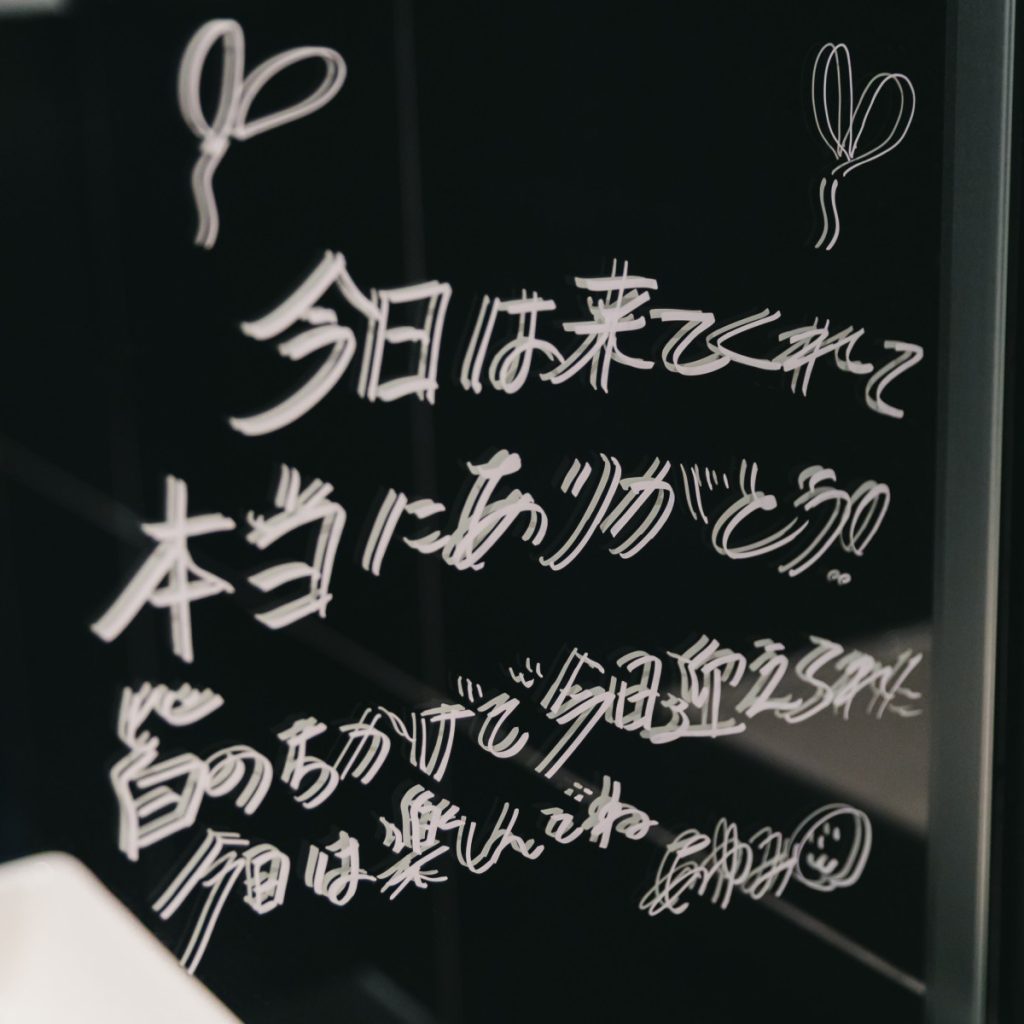 今日は来てくれて
本当にありがとう!!
皆のおかげで今日迎えられた
今日は楽しんでね
あゆみ